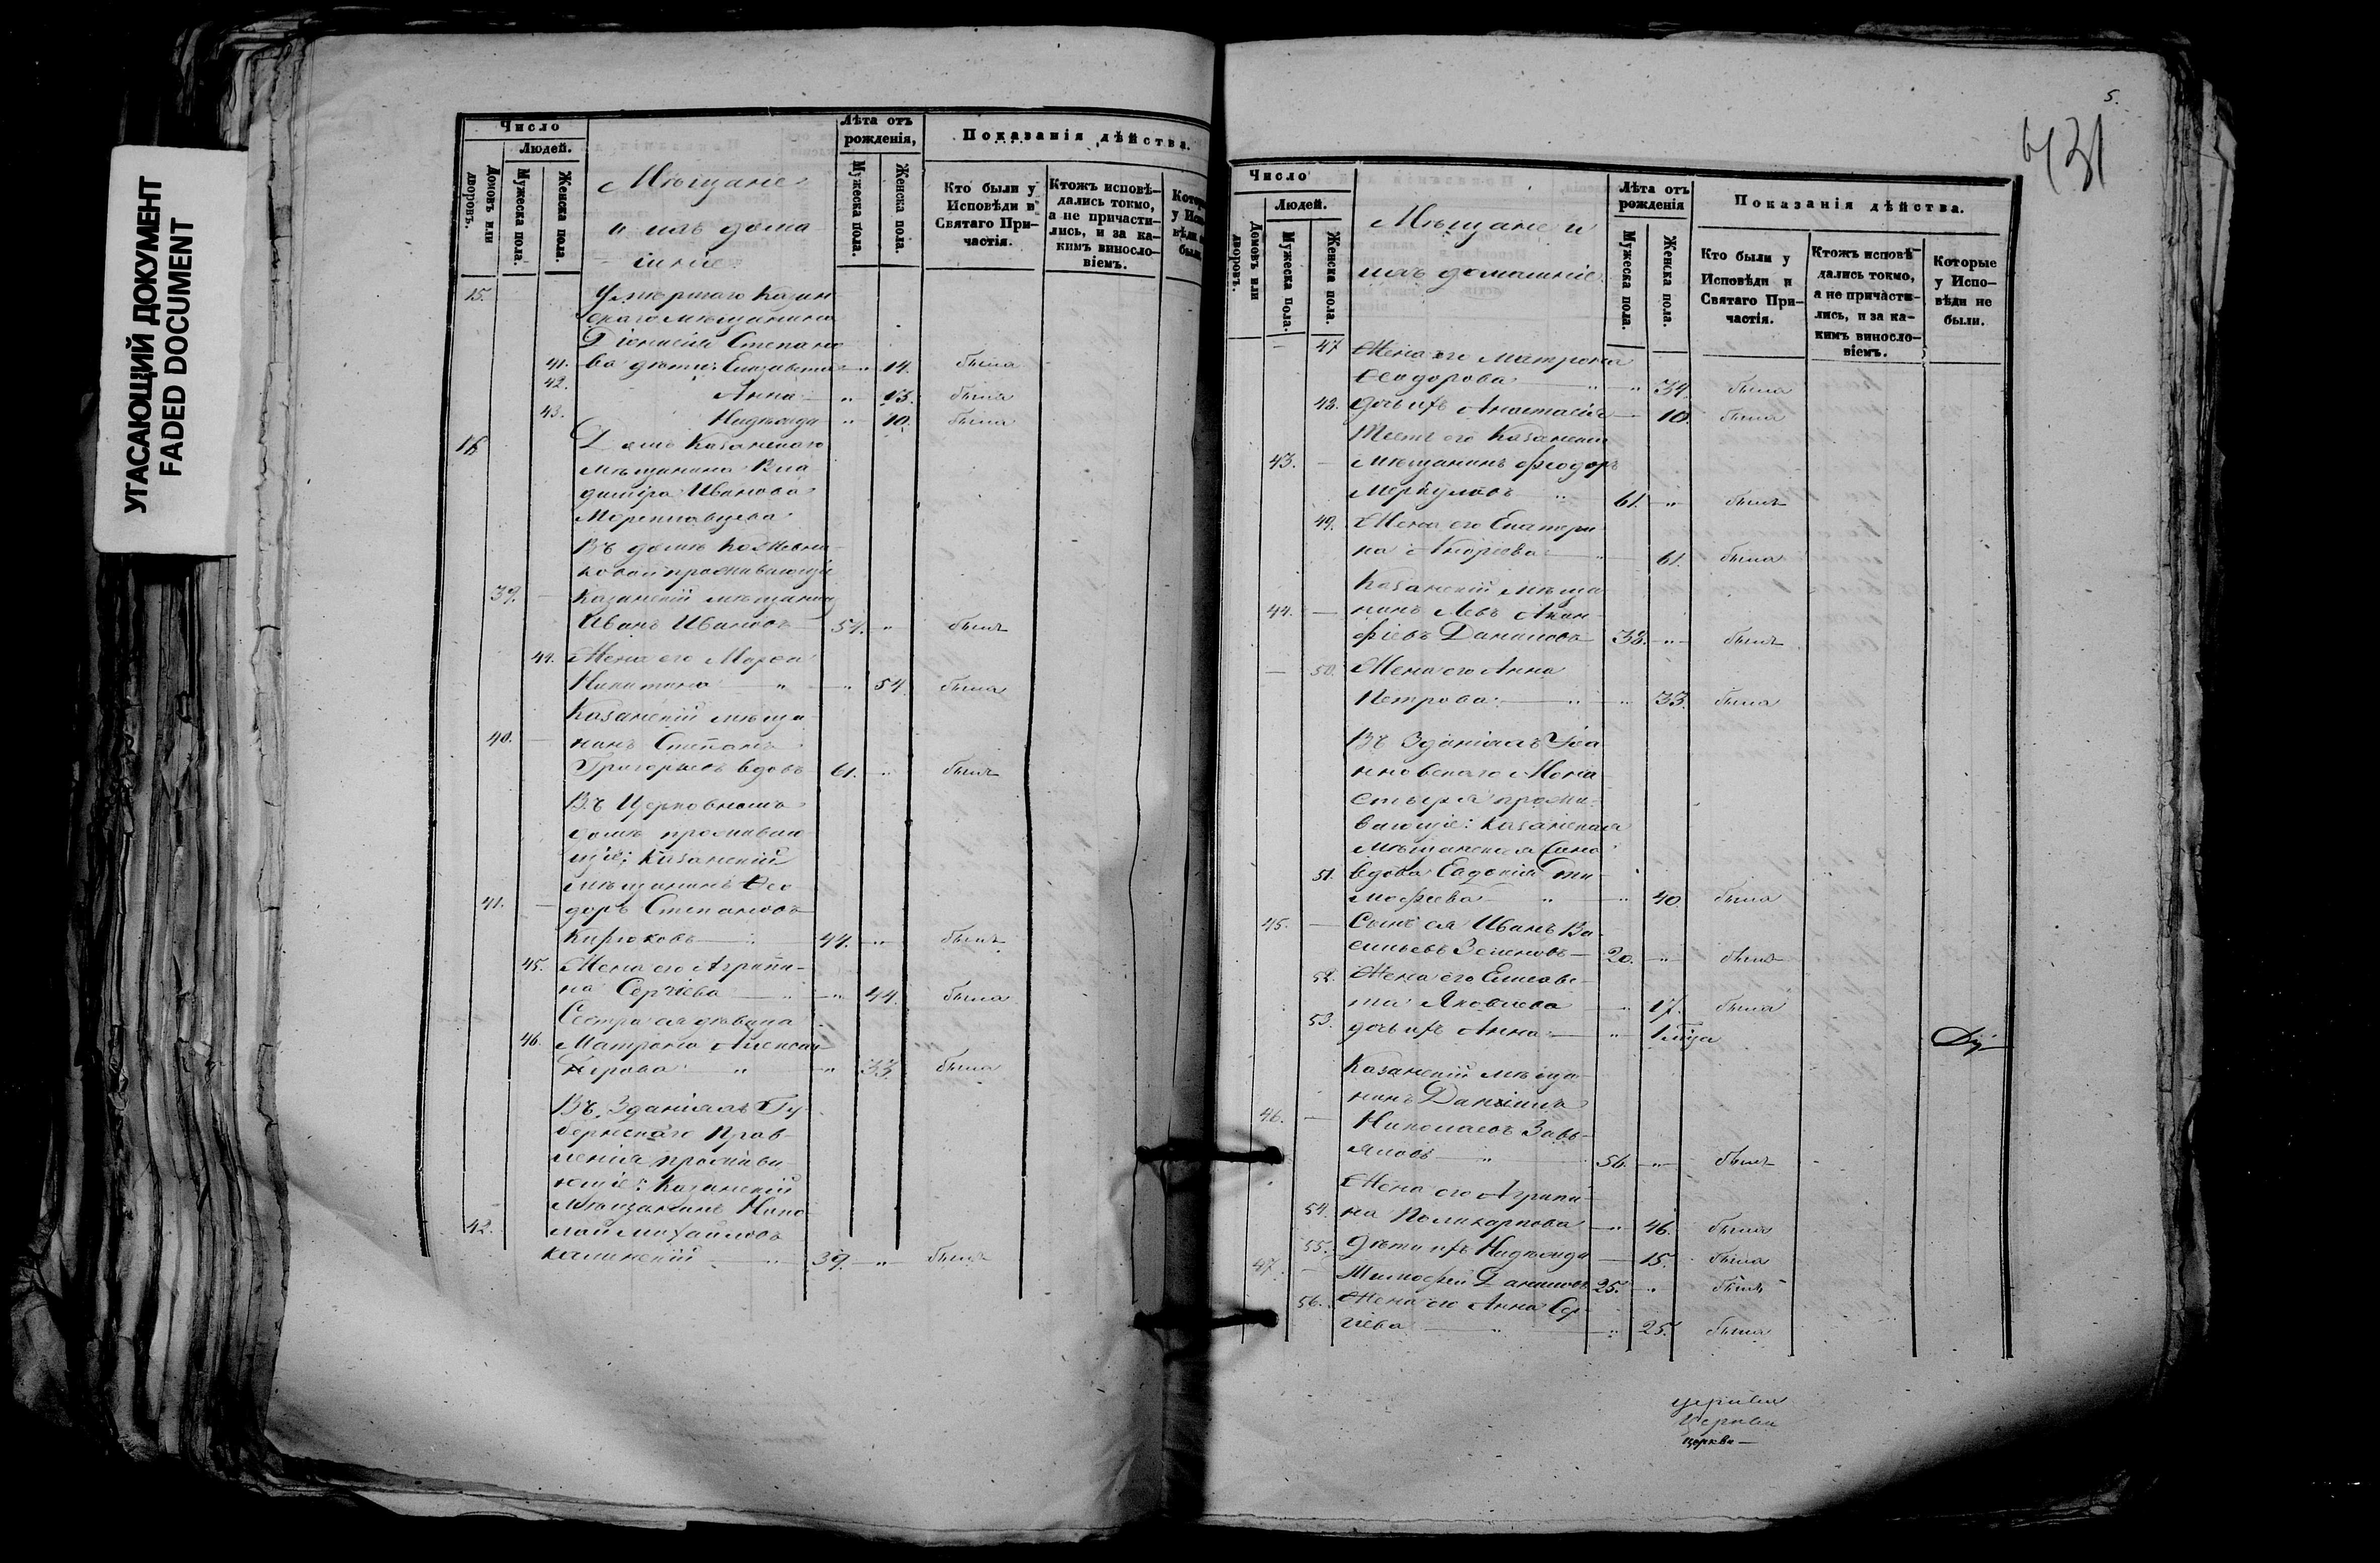 УГАСАЮЩИЙ ДОКУМЕНТ
FADED DOCUMENT
Число
Людей.
Домовъ или дворовъ.
Мужеска пола.
Женска пола.
Мѣщане
и ихъ дома
шніе.
Лѣта отъ рожденія,
Мужеска пола.
Женска пола.
Показанія дѣйства.
Кто были у Исповѣди и Святаго При-частія.
Ктожъ исповѣ-дались токмо, а не причасти-лись, и за ка-кимъ винословіемъ.
15. Умершаго Казан
скаго мѣщанина
Діонисія Степано
41. ва дѣти: Елизавета " 14. была
42. Анна " 13. была
43. Надежда " 10. была
16 Домъ Казанскаго
мѣщанина Вла
диміра Иванова
Въ домѣ Кожевни
ковой проживающіе
39. Казанскій мѣщанинъ
Иванъ Ивановъ 54. " былъ
44. Жена его Марѳа
Никитина " " 54 была
Казанскій мѣща
40. нинъ Степанъ
Григорьевъ вдовъ 61. " былъ
Въ Церковномъ
домѣ проживаю
щіе: Казанскій
мѣщанинъ Ѳео
41. доръ Степановъ
Кирюковъ 44. " былъ
45. Жена его Агрипи-
на Сергѣева " " 44. была
Сестра ея дѣвица
46. Матрона Алексан
дрова " " 33. была
Въ Зданіяхъ Гу-
бернскаго Прав-
ленія прожива
ющіе: Казанскій
мѣщанинъ Нико
42. лай Михайловъ
Калинскій " 39. " былъ
5.
431
Число
Людей.
Домовъ или дворовъ.
Мужеска пола.
Женска пола.
Мѣщане и
ихъ домашніе.
Лѣта отъ рожденія
Мужеска пола.
Женска пола.
Показанія дѣйства.
Кто были у Исповѣди и Святаго При-частія.
Ктожъ исповѣ-дались токмо, а не причасти-лись, и за ка-кимъ винословіемъ.
Которые у Испо-вѣди не были.
47 Жена его Матрона
Ѳеодорова " " 34. была
48. дочь ихъ Анастасія 10. была
Тесть его Казанскій
43. мѣщанинъ Ѳеодоръ
Меркуловъ " 61. " былъ
49. Жена его Екатери
на Андреева " 61. была
Казанскій мѣща
44. нинъ Левъ Акин-
фіевъ Даниловъ 38. " былъ
50. Жена его Анна
Петрова " " 33. была
Въ Зданіяхъ Іоа
нновскаго Мона
стыря прожи-
вающіе: Казанская
мѣщанская Сына
51. вдова Евдокія Ти
мофеева " " 40. была
45. Сынъ ея Иванъ Ва
сильевъ Зеленовъ 20. " былъ
52. Жена его Елисаве
та Яковлева " 17. была
53. дочь ихъ Анна " 1 мѣсяца
Казанскій мѣща
нинъ Даніилъ
46. Николаевъ Завь-
яловъ " 56. " былъ
Жена его Агрипи-
54. на Поликарпова " 46. была
55. Дѣти ихъ Надежда 15. была
47. Тимофей Даниловъ 25. " былъ
56. Жена его Анна Сер
гіева " " 25. была
церкви
Церкви
церкви